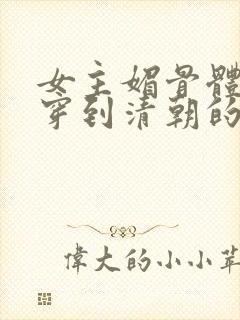 女主媚骨體
穿到清朝的
偉大的小小草